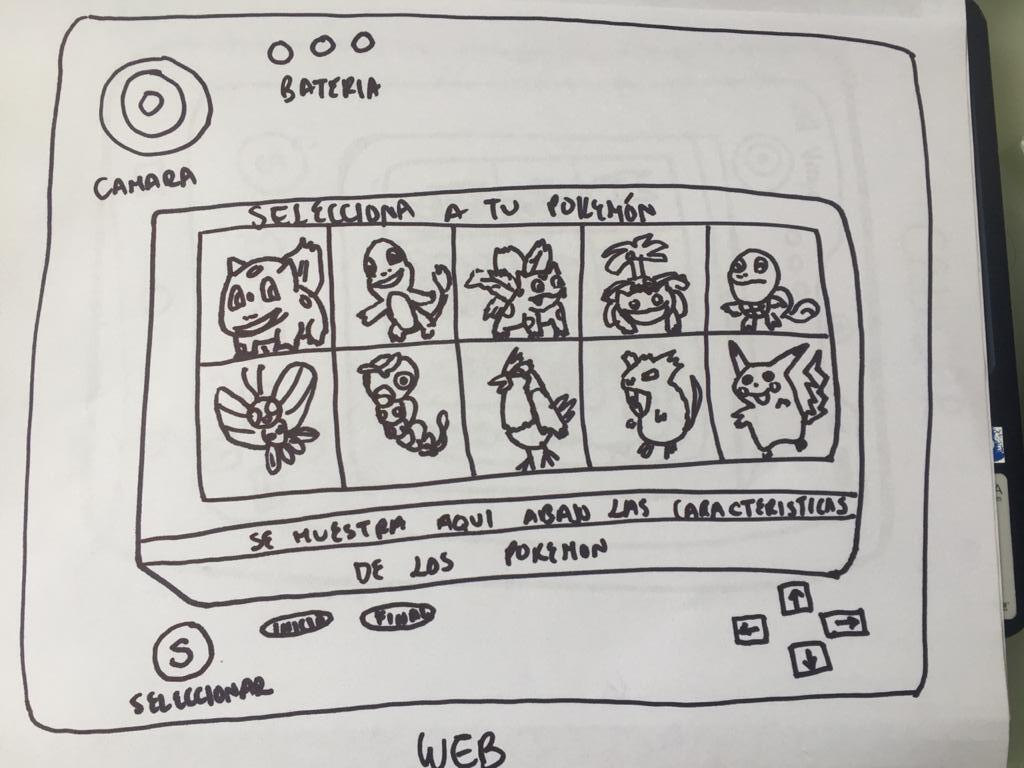 BATERIA
CAMARA
SELECCIONA A TU POKEMÓN
SE MUESTRA AQUI ABAJO LAS CARACTERISTICAS
DE LOS POKEMON
INICIO FINAL
S
SELECCIONAR
WEB